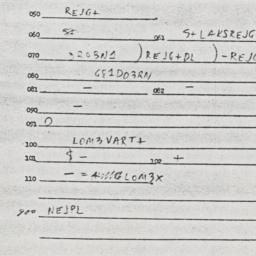 050 REJG+
060 S+ 061 S+LAKSREJG
070 )REJG+DL )-REJG
080 GE1DO3RN
081 - 082 -
090 -
091
100 LOM3VART+
101 $ - 102 +
110 LOM3X
900 NEJPL